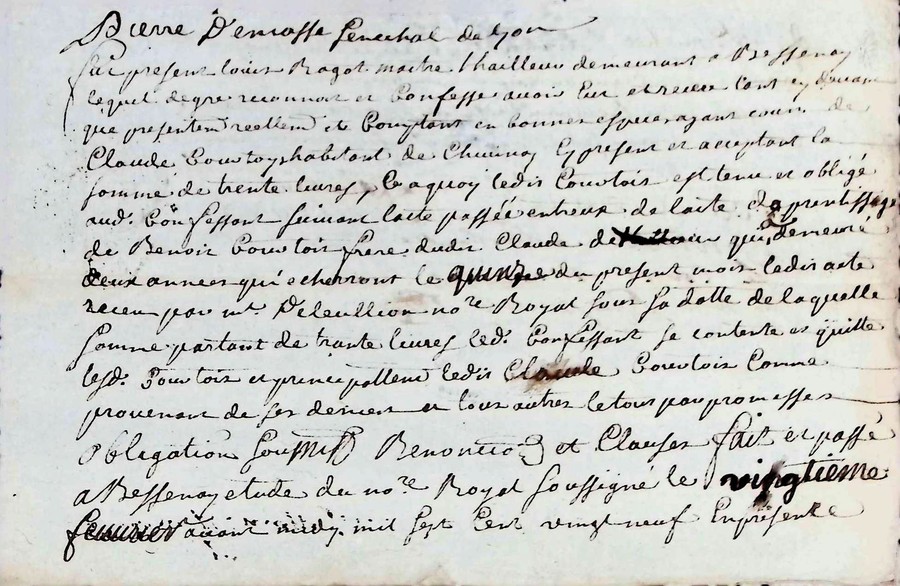 Pierre Demasse Senechal de Lyon
fut present Louis Ragot maitre thailleur demeurant a Bessenay
lequel de gre reconnoit et Confesse avoir Eut et receu tant cy devant
que presentem reellem et Comptant en bonnes especes ayant cours de
Claude Courtoys habitant de Chevinay Cy present et acceptant la
somme de trente livres, a quoy ledit Courtois est tenu et obligé
aud. Confessant suivant lacte passéé entreux de lacte daprentissage
de Benoit Courtois frere dudit Claude de qui a demeuré
deux années qui echerront le quinze du present mois ledit acte
receu par me no.re Royal sous sa datte de laquelle
somme partant de trante livres led. Confessant se contente et quitte
lesd. Courtois et principallem ledit Claude Courtois Comme
provenant de ses deniers et tous autres le tout par promesses
Obligation soumiss Renonciaon et Clauses fait et passé
a Bessenay etude du no.re Royal soussigné le vingtieme
fevrier avant midy mil sept Cent vingt neuf En présence